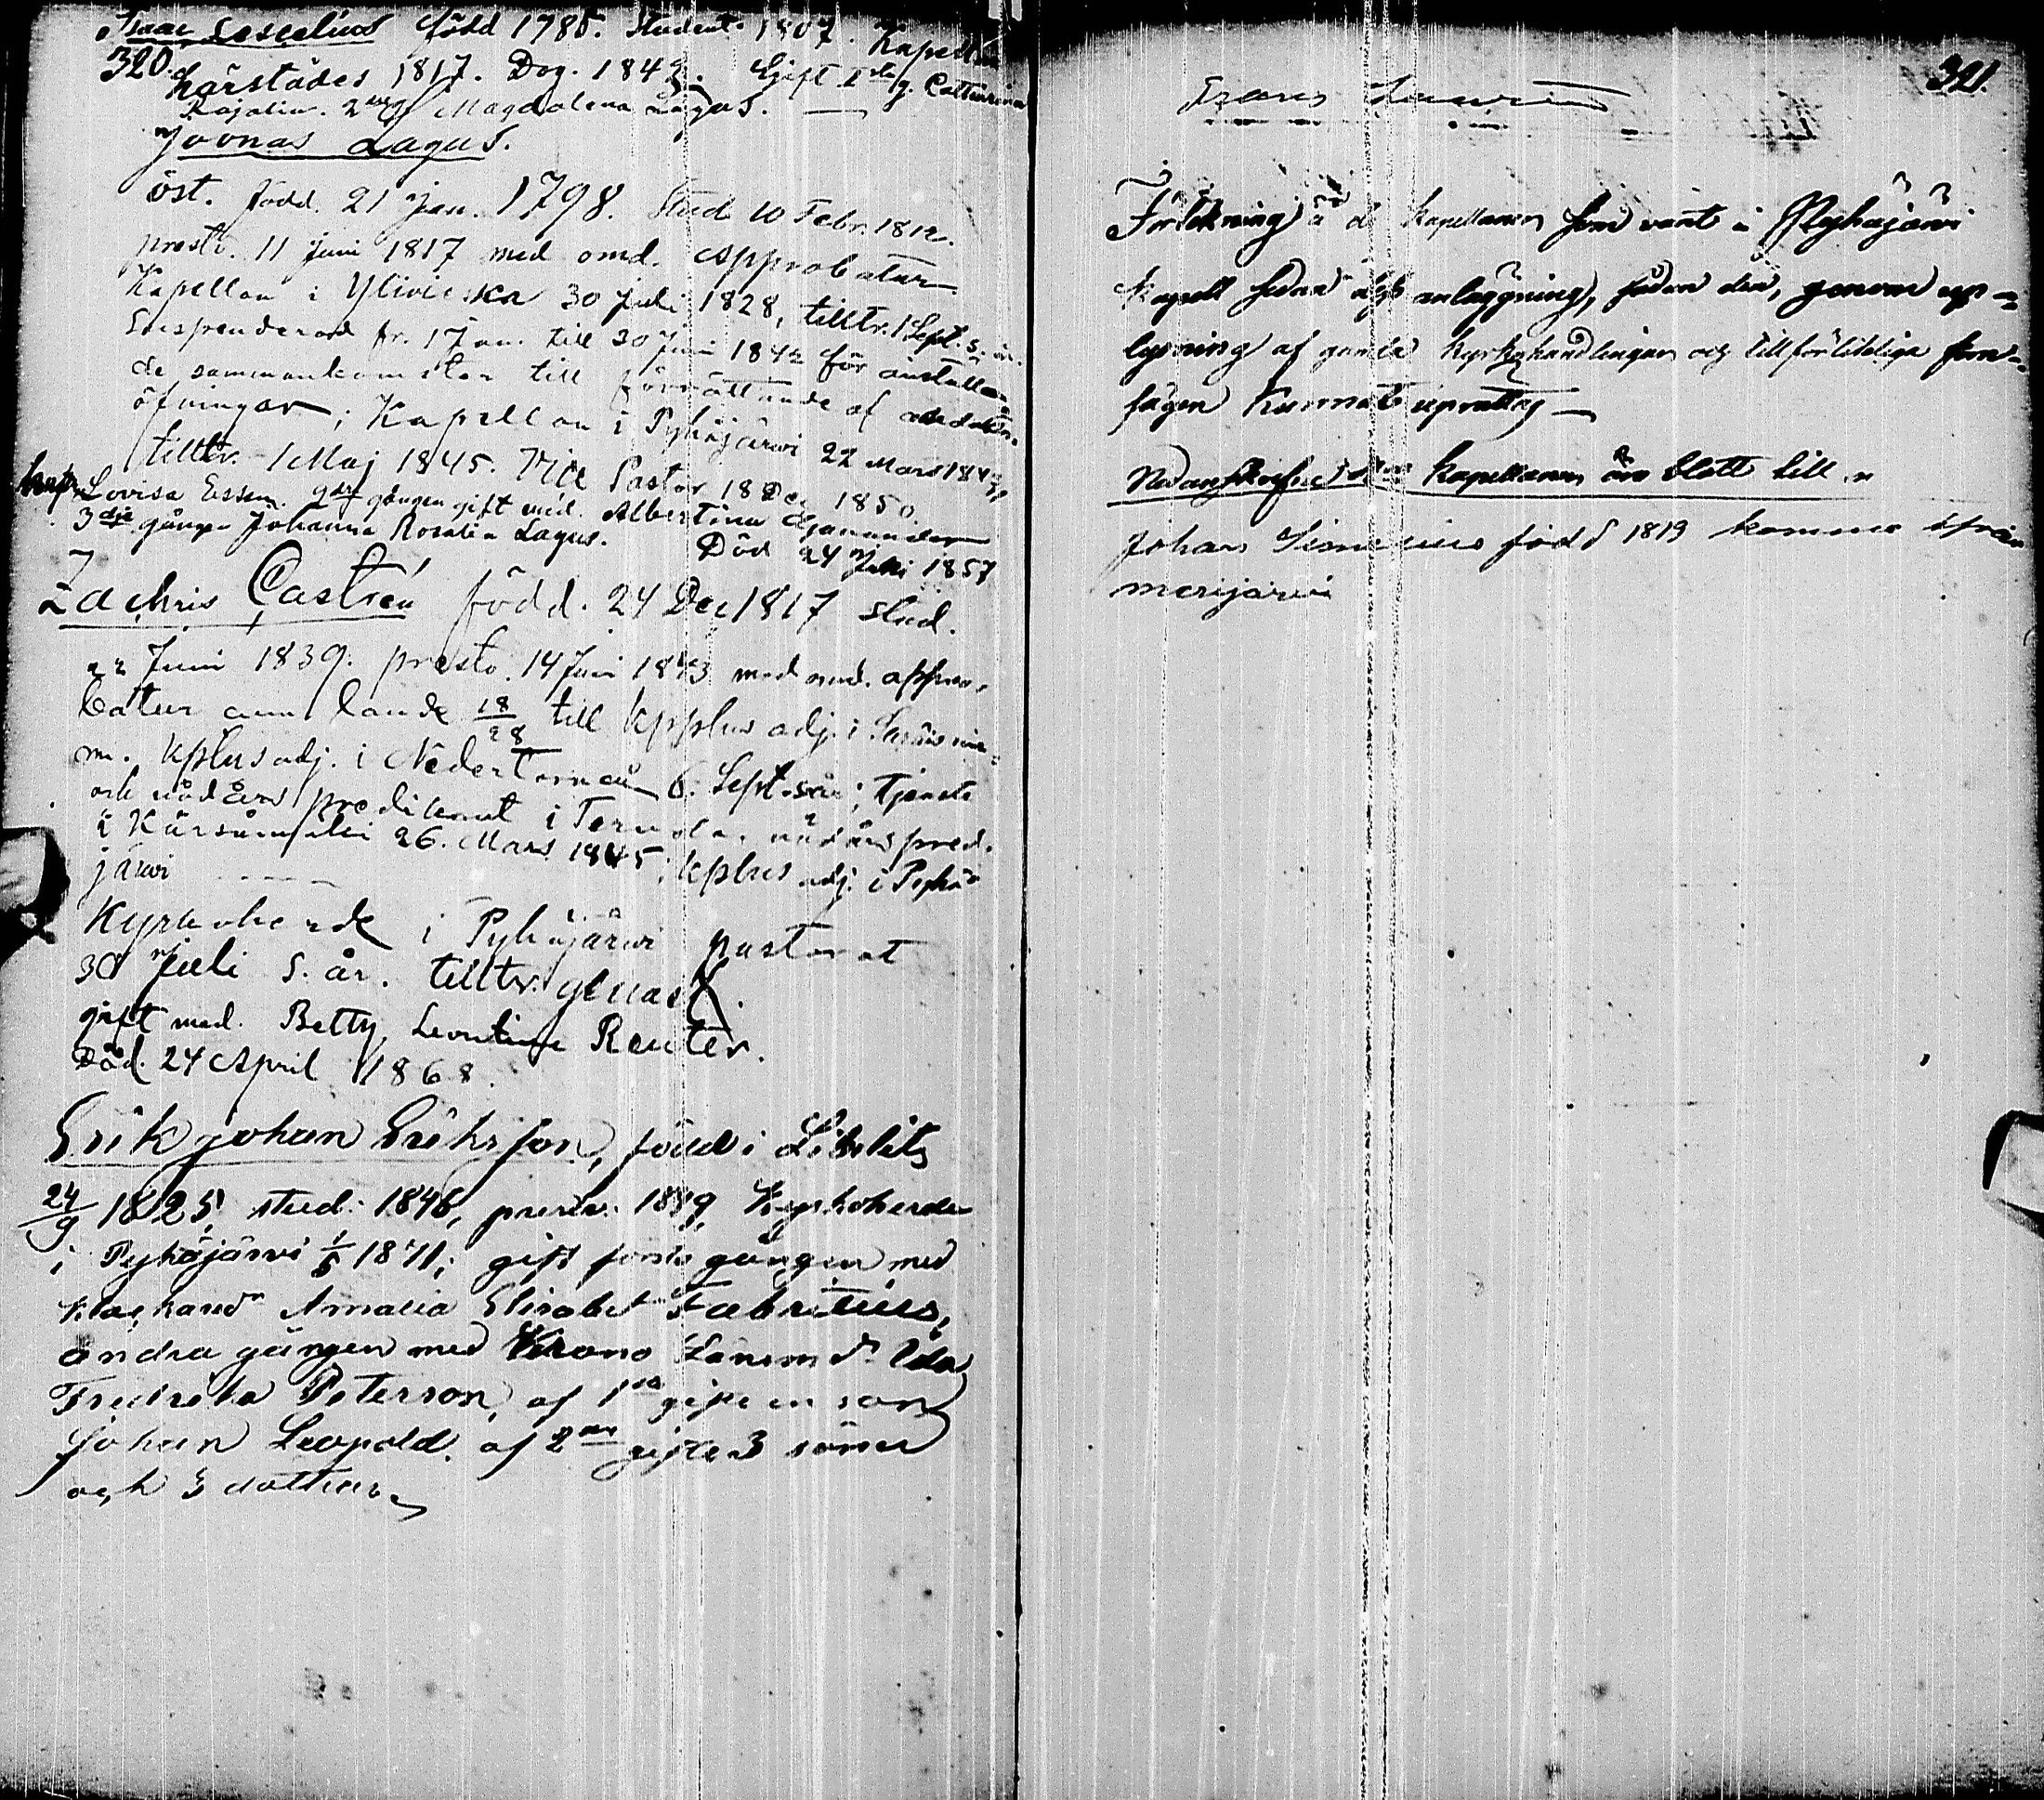 Isaac Coscelius född 1785. Student 1807. Kapellan
320.
härstädes 1817. Dog. 1842. Gift I sta g. Catharina
Rajalin. 2 dra g Magdalena Lagus. —
Joonas Lagus.
öst. född. 21 Jan. 1798. Stud 10 Febr. 1812.
prestv. 11 Juni 1817 med omd. Approbatur
Kapellan i Ylivieska 30 Juli 1828, tilltr. 1 Sept. s. år.
Suspenderad fr. 1 Jan. till 30 Juni 1842 för anställan-
de sammankomster till förrättande af andakts-
öfningar; Kapellan i Pyhäjärwi 22 Mars 1843,
tilltr. 1 Maj 1845. Vice Pastor 18 Dec 1850.
Lovisa Essen. 2 dra gången gift med. Albertina Ganander
3 dje gången Johanna Rosalia Lagus.
Död 24 Juli 1857
Zachris Castrén född. 24 Dec 1817 stud.
22 Juni 1839. prestv. 14 Juni 1843 med omd. appro-
batur till Kpplus adj. i
Kplus adj. i Nedertorneå 6. Sept. s. år; tjenste
och nådårs predikant i Tervola, nådårs pred.
i Kärsämäki 26. Mars 1845; Kplus adj. i Pyhä-
järwi
Kyrkoherde i Pyhäjärwi pastorat
30 Juli s. år. tilltr. genast
gift med. Betty Leontine Reuter.
Död. 24 April 1868.
Erik Johan Eriksson, född i Libelits
24/9 1825, stud: 1846, prestv: 1849, Kyrkoherde
i Pyhäjärvi 1/5 1871; gift första gången med
Amalia Elisabet Fabritius,
andra gången med Krono Länsm. d. Ida
Fredrika Peterson, af 1 sta gifte en son
Johan Leopold. af 2 dra gifte 3 söner
och 3 döttrar.
321.
Frans
Förtekning å de kapellaner som varit i Pyhäjärvi
Kapell sedan dess anläggning, sådan den, genom up-
lysning af gamla kyrkohandlingar och tillförlitliga
sägen kunnat uprättas —
kapellaner äro blott till
Johan Simelius född 1819 kommen ifrån
merijärvi